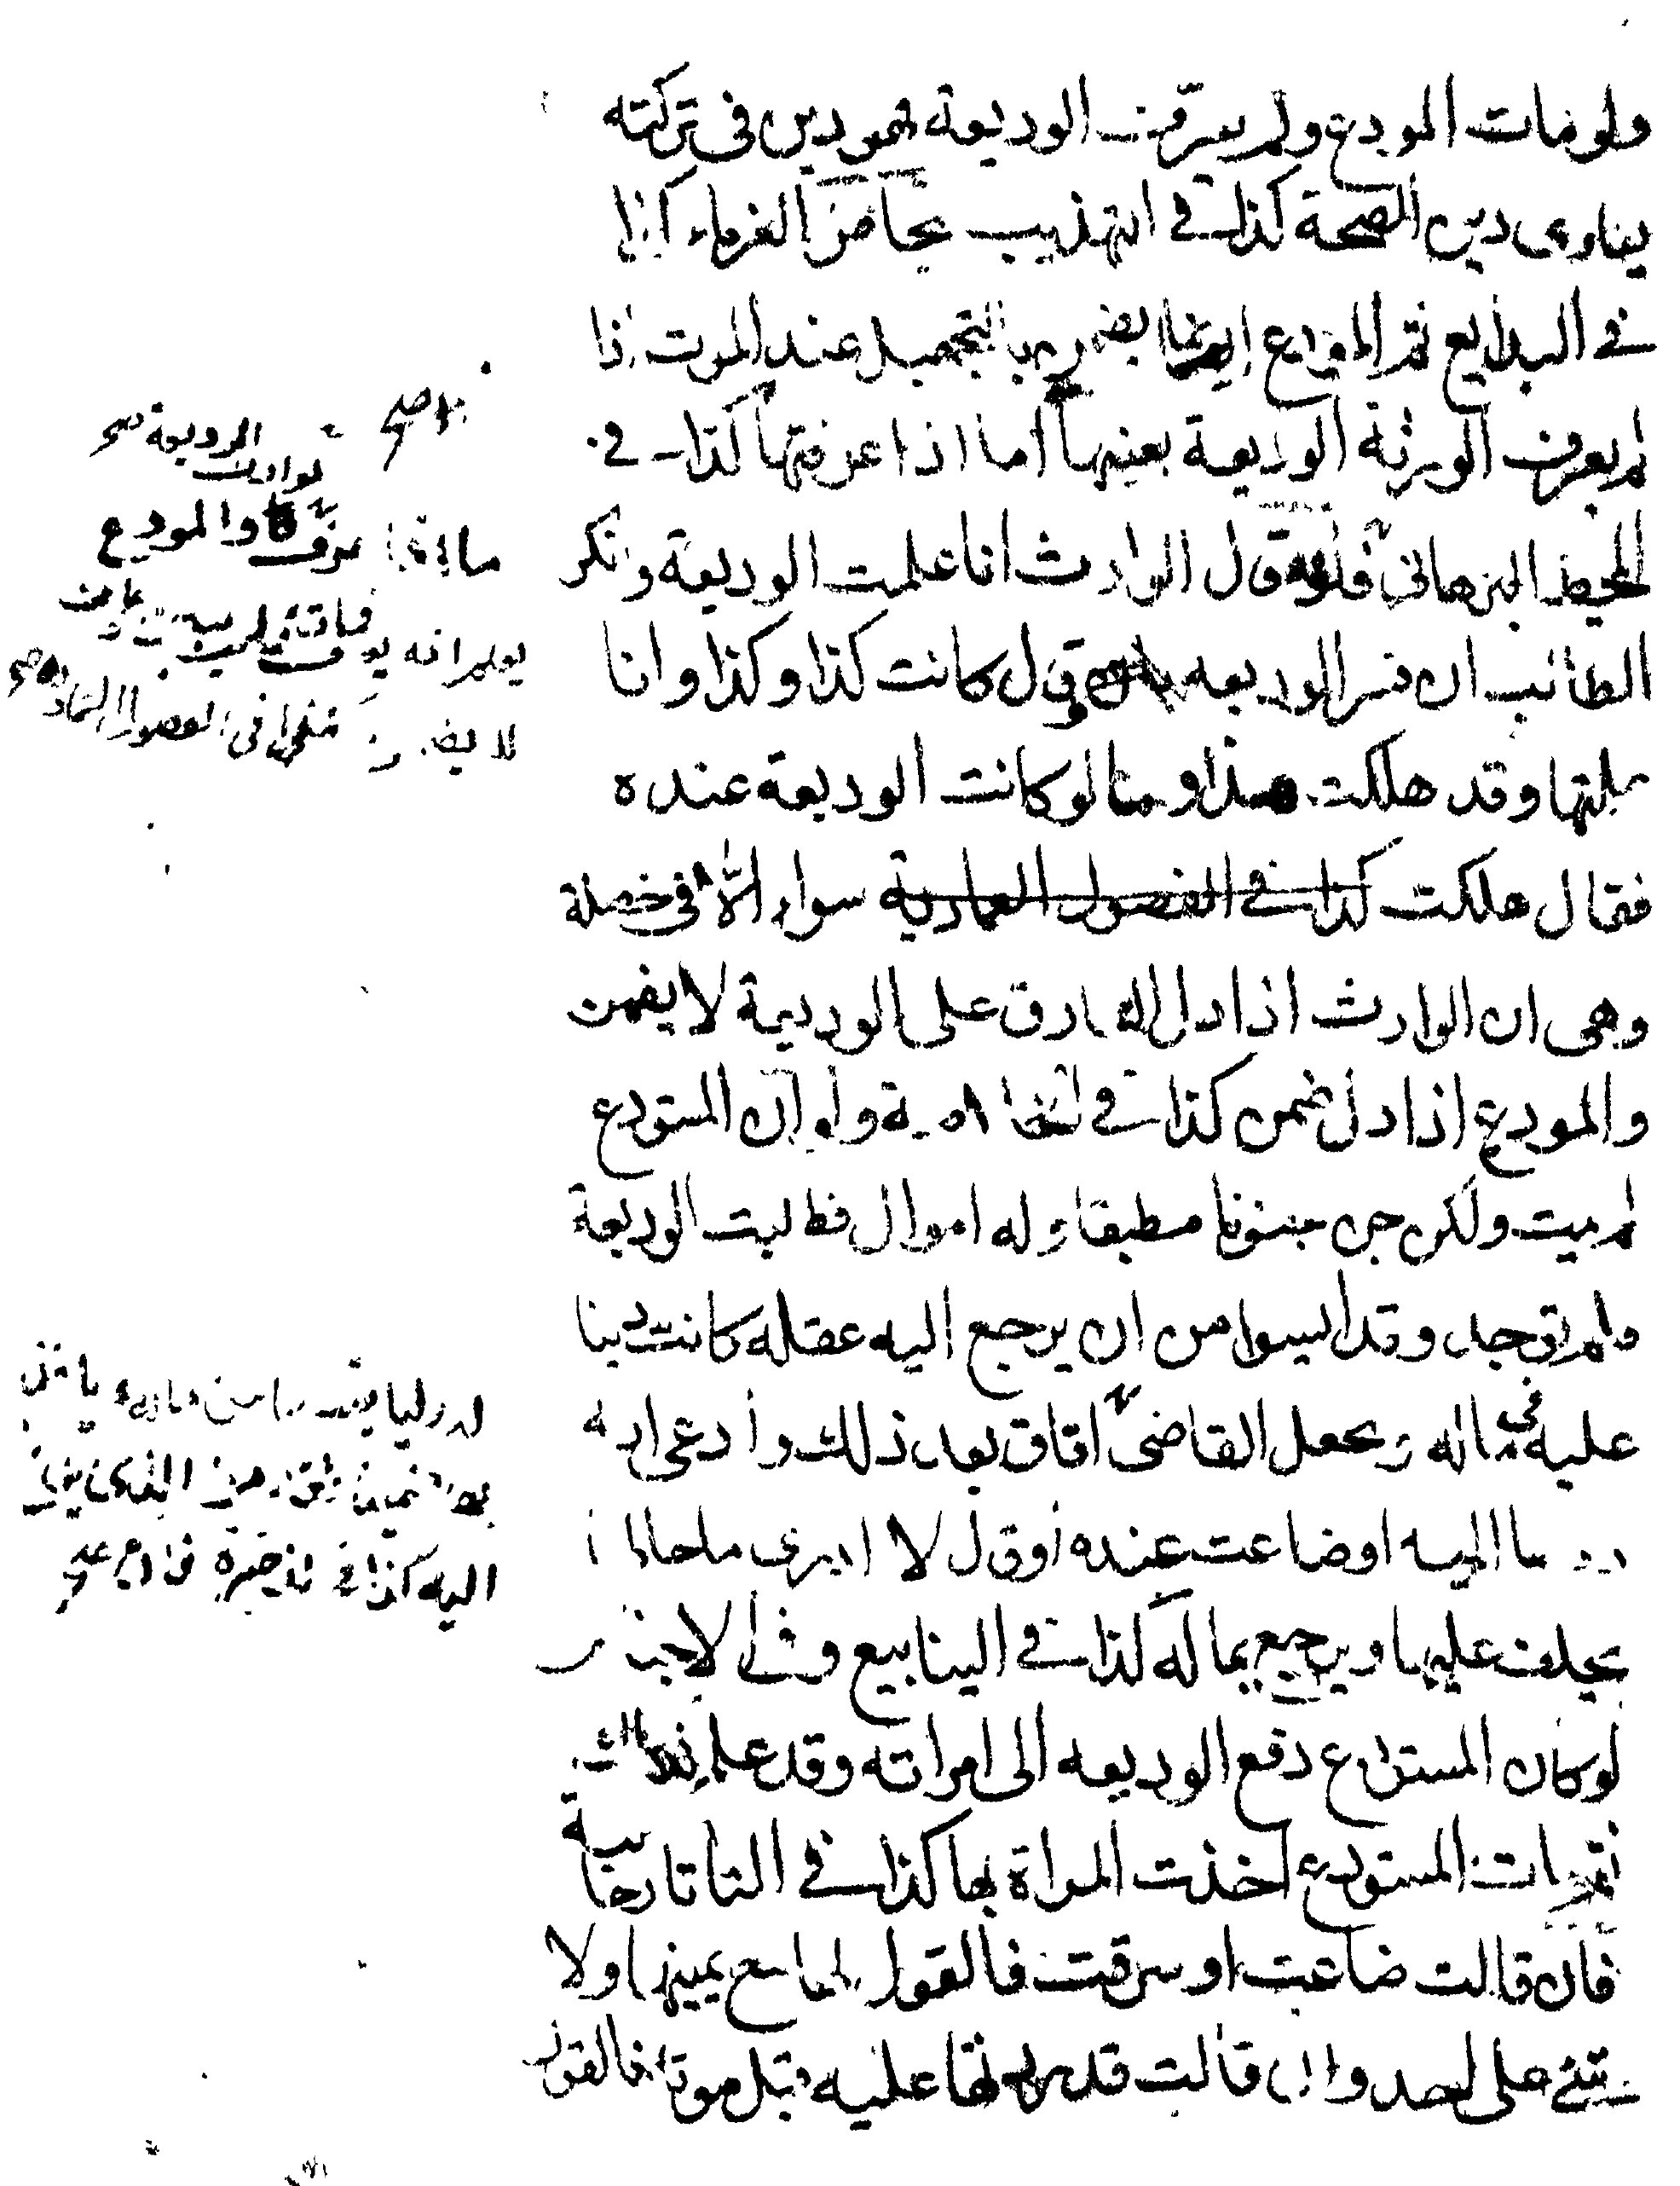 ولو مات المودع ولم يعرف الوديعة فهو دين في تركته
يساوى دين الصحة كذا في التهذيب يحاص الغرماء كذا
في البدايع ثم المودع انما يضمن بالتجهيل عند الموت اذا
لم يعرف الورثة الوديعة بعينها اما اذا عرفتها كذا في
المحيط البرهاني فلو قال الوارث انا علمت الوديعة وانكر
الطالب ان فسر الوديعه وقال كانت كذا وكذا وانا
علمتها وقد هلكت هذا وما لو كانت الوديعة عنده
فقال هلكت كذا في الفصول العمادية سواء الا في خصلة
وهي ان الوارث اذا دل السارق على الوديعة لا يضمن
والمودع اذا دل ضمن كذا في الخلاصة ولو ان المستودع
لم يمت ولكن جن جنونا مطبقا وله اموال فطلبت الوديعة
ولم توجد وقد ايسوا من ان يرجع اليه عقله كانت دينا
عليه في ماله ويجعل القاضي افاق بعد ذلك وادعى انه
ردها اليه او ضاعت عنده او قال لا ادري ما حالها
يحلف عليها ويرجع بماله كذا في الينابيع وفي الاجناس
لو كان المستودع دفع الوديعه الى امراته وقد علم بذلك
ثم مات المستودع اخذت المراة بها كذا في التاتارخانية
فان قالت ضاعت او سرقت فالقول لها مع يمينها ولا
شئ على احد وان قالت قد رددتها عليه قبل موته فالقول
الوديعة صح
لوارث
ما اذا عرف والمودع
يعلم انه
لا يضمن في الفصول العمادية صح
له وليا يقبض ماله
الذي
اليه كذا في الذخيرة فان